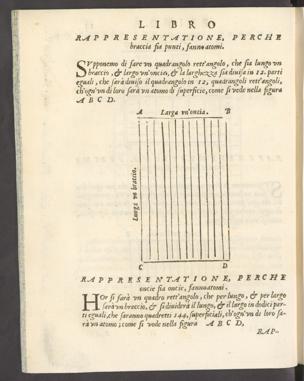 LIBRO
RAPPRESENTATIONE, PERCHE
braccia sia punti, fanno atomi.
SVpponemo di fare vn quadrangolo rett'angolo, che sia lungo vn
braccio, & largo vn'oncia, & la larghezza sia diuisa in 12. parti
eguali, che sarà diuiso il quadrangolo in 12, quadrangoli rett'angoli,
ch'ogn'vn di loro sarà vn atomo di superficie, come si vede nella figura
A B C D.
A Larga vn'oncia. B
Lunga vn braccio.
C D
RAPPRESENTATIONE, PERCHE
oncie sia oncie, fanno atomi.
HOr si farà vn quadro rett'angolo, che per lungo, & per largo
sarà vn braccio, & si diuiderà il lungo, & il largo in dodici par-
ti eguali, che saranno quadretti 144, superficiali, ch'ogn'vn di loro sa-
rà vn atomo; come si vede nella figura A B C D,
RAP-